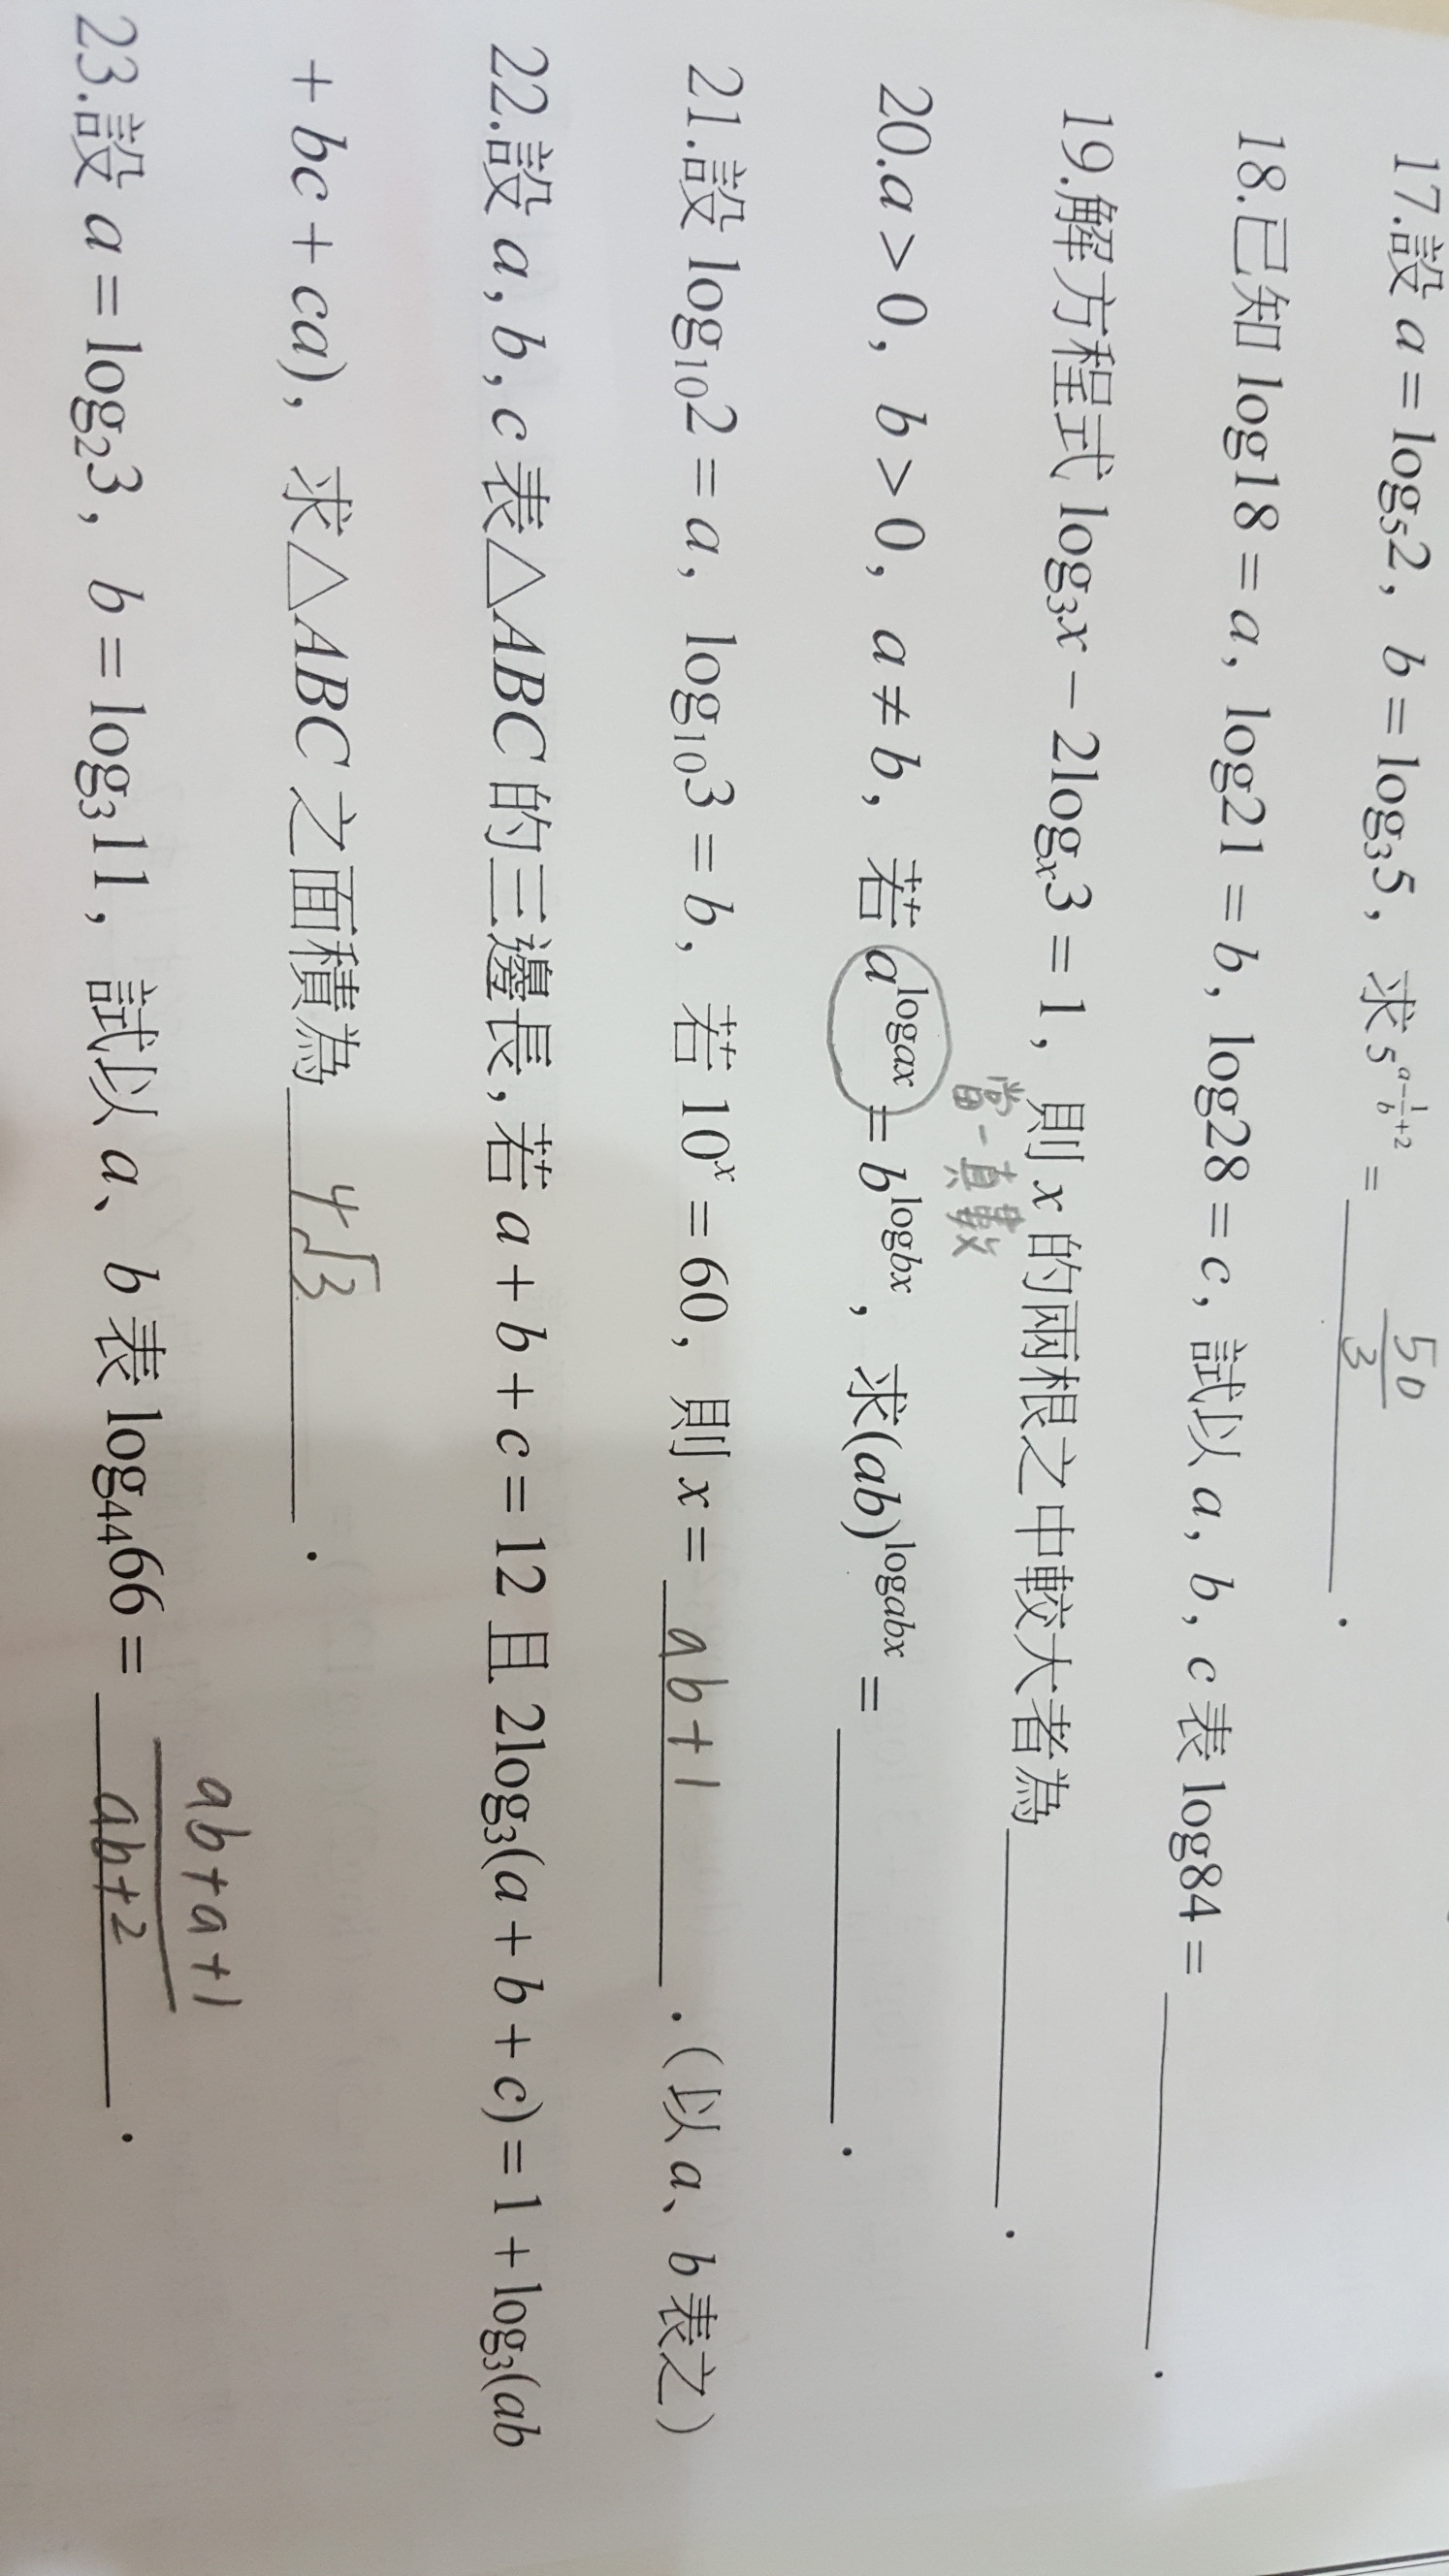 17.設 a = log₅2, b = log₃5, 求 5^(a - 1/b + 2) = 50/3 .
18.已知 log18 = a, log21 = b, log28 = c, 試以 a, b, c 表 log84 = .
19.解方程式 log₃x − 2logₓ3 = 1, 則 x 的兩根之中較大者為 .
當一真數
20.a > 0, b > 0, a ≠ b, 若 a^(logax) = b^(logbx), 求(ab)^(logabx) = .
21.設 log₁₀2 = a, log₁₀3 = b, 若 10ˣ = 60, 則 x = ab+1 .(以 a、b 表之)
22.設 a, b, c 表△ABC 的三邊長, 若 a + b + c = 12 且 2log₃(a + b + c) = 1 + log₃(ab
+ bc + ca), 求△ABC 之面積為 4√3 .
23.設 a = log₂3, b = log₃11, 試以 a、b 表 log₄₄66 = (ab+a+1)/(ab+2) .